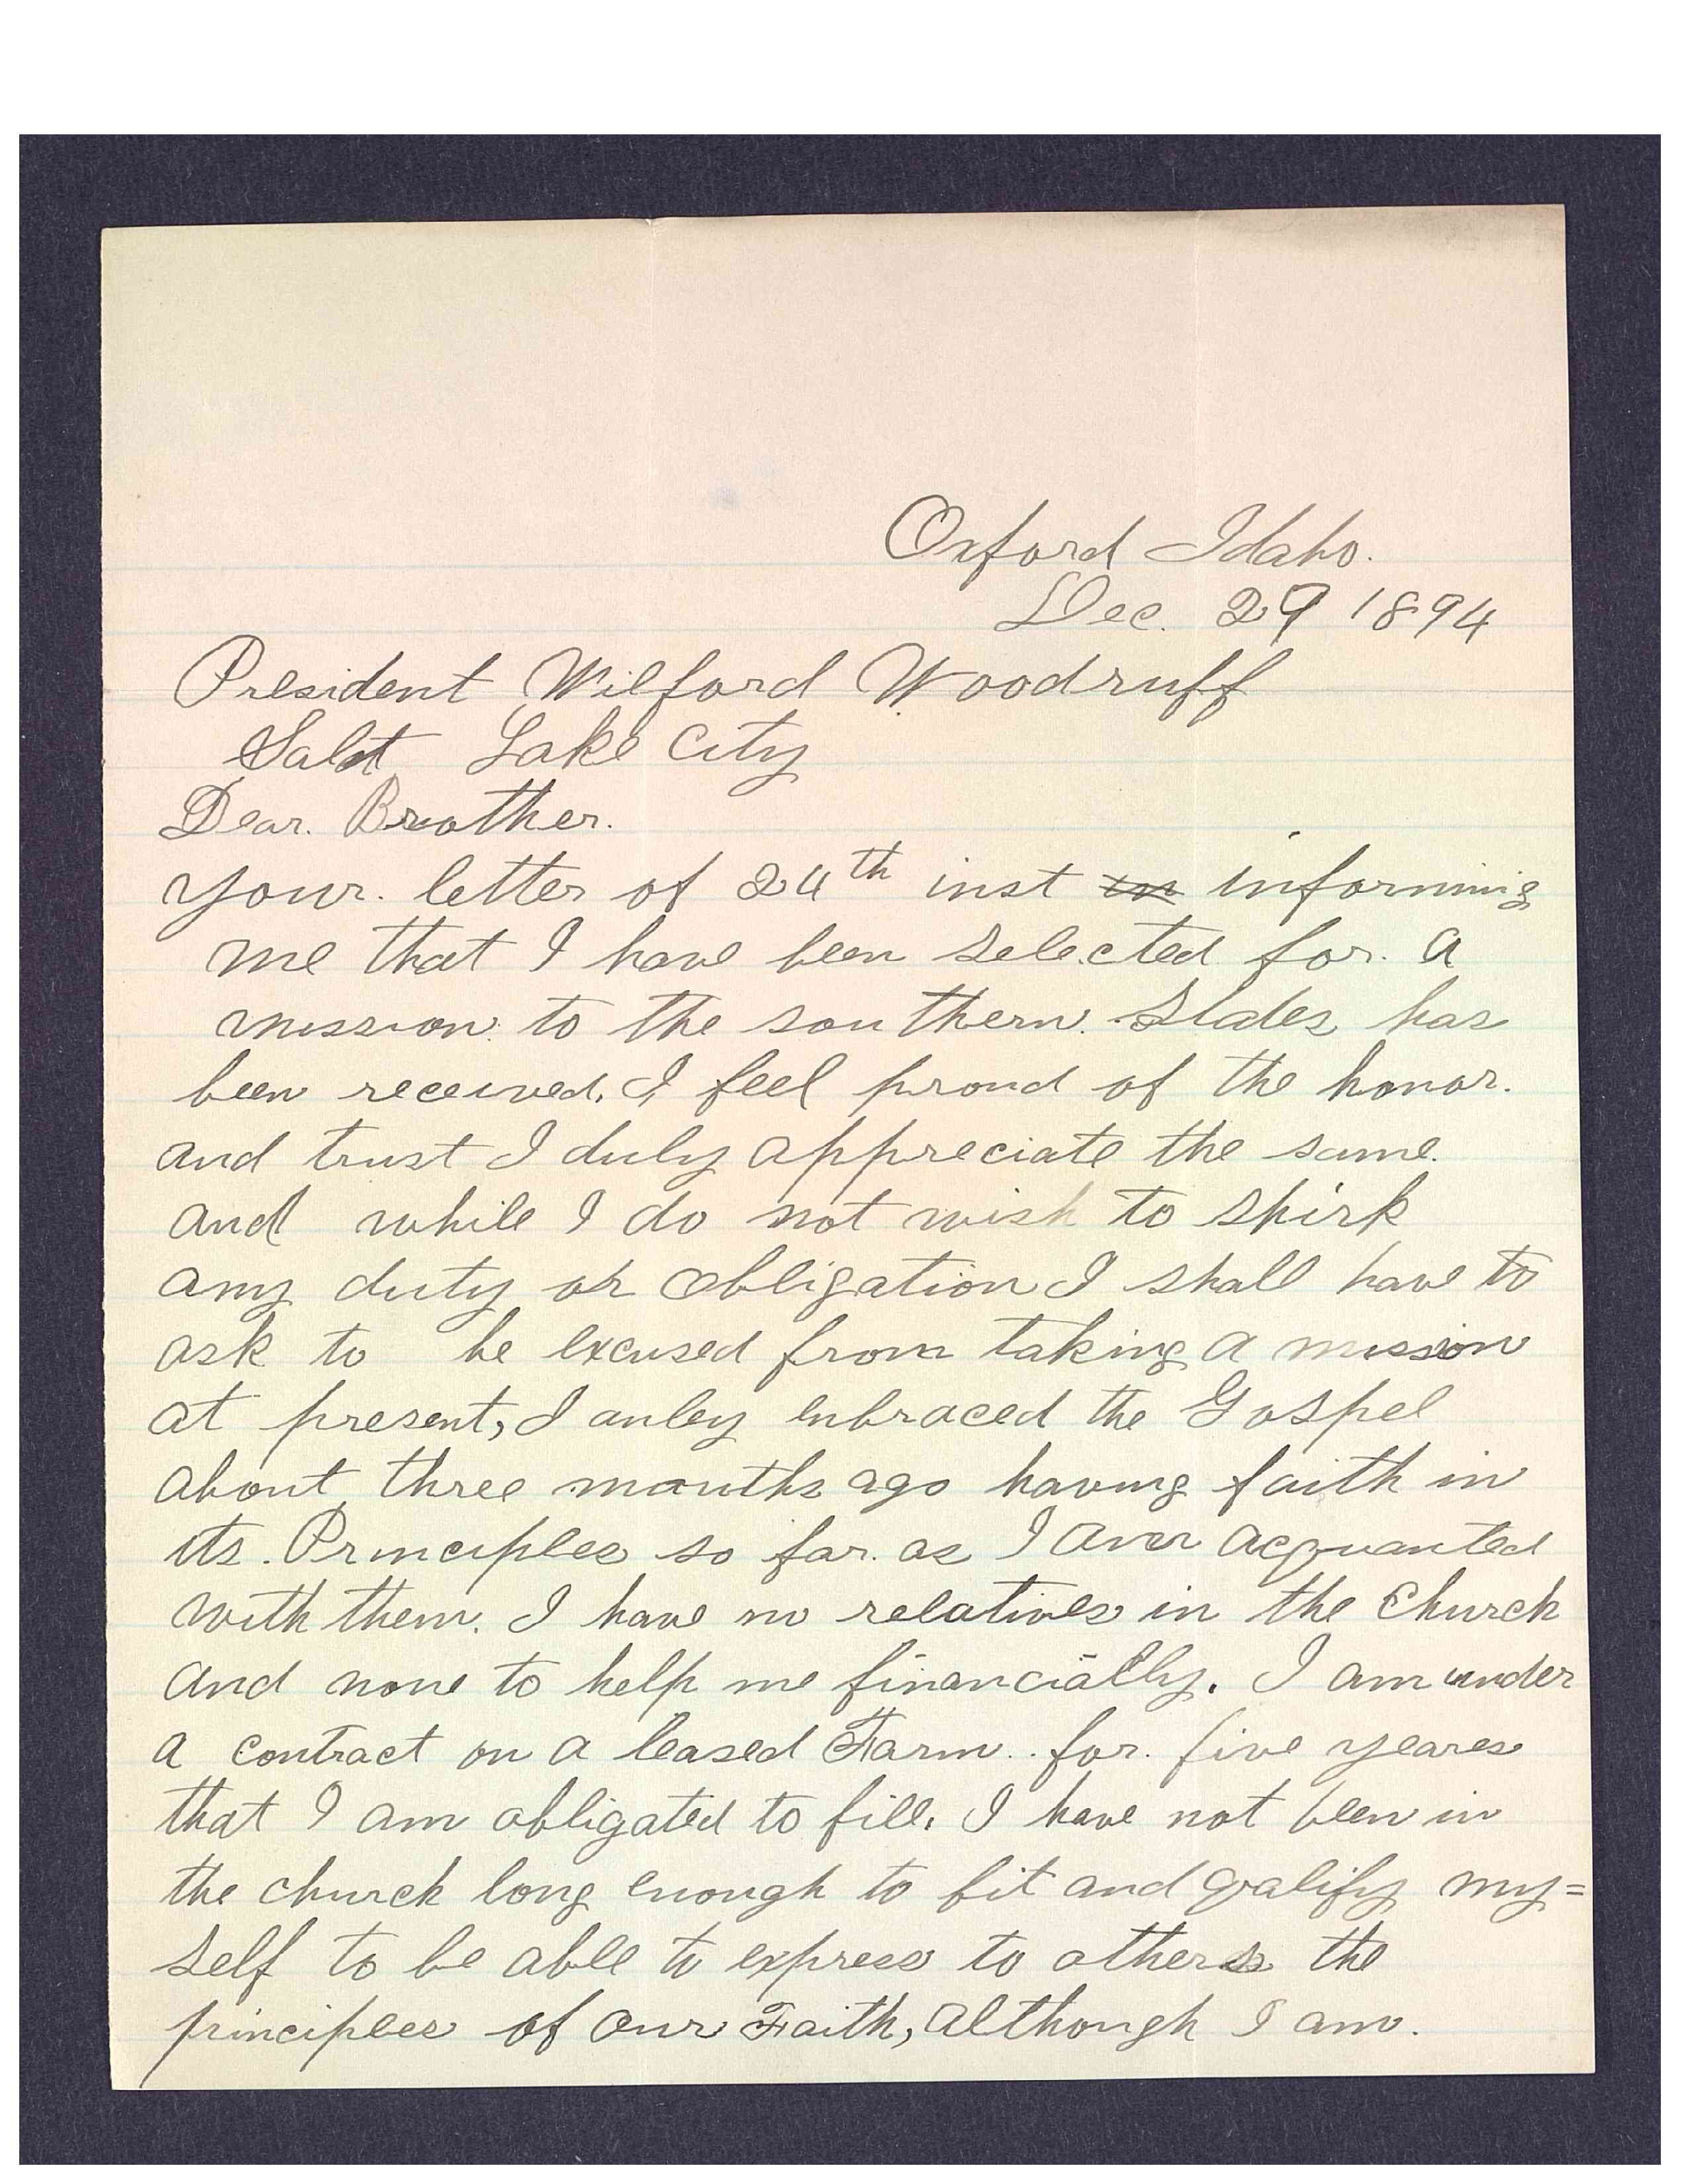 Oxford Idaho.
Dec. 29 1894
President Wilford Woodruff
Salt Lake City
Dear. Brother.
your. letter of 24th inst in informing
me that I have been selected for. a
mission to the southern. States has
been received, I, feel proud of the honor.
and trust I duly appreciate the same.
and while I do not wish to shirk
any duty or obligation I shall have to
ask to be excused from taking a mission
at present, I anley enbraced the Gospel
about three months ago having faith in
its. Principles so far. as I am acquanted
with them. I have no relatives in the Church
and none to help me financially. I am under
a contract on a leased Farm.. for. five yeares
that I am obligated to fill. I have not been in
the church long enough to fit and qualify my=
self to be able to express to others the
principles of our Faith, although I am.